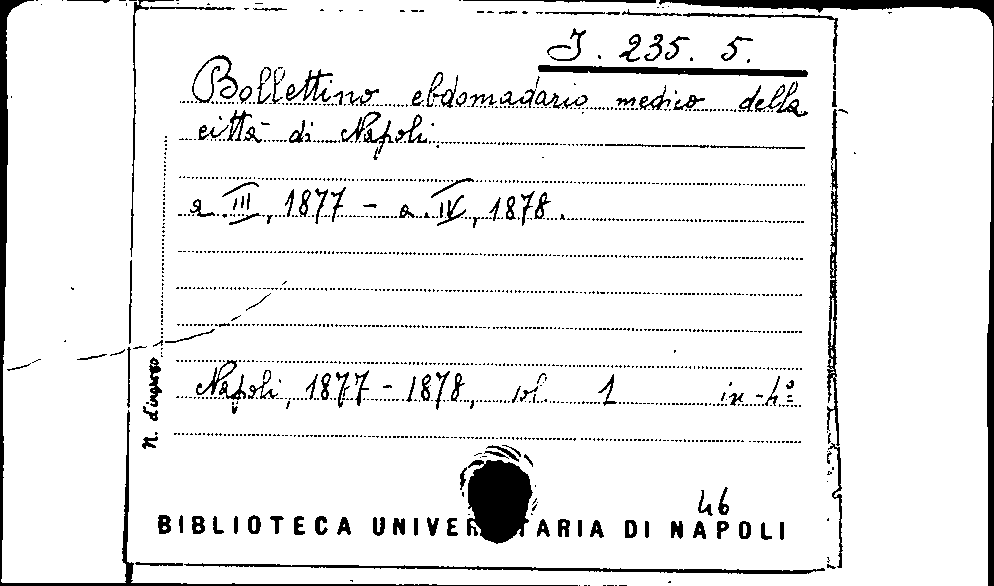 J. 235. 5.
Bollettino ebdomadario medico della
città di Napoli.
a. III, 1877 - a. IV, 1878.
Napoli, 1877-1878, vol. 1 in-4º
N. d'ingresso
46
BIBLIOTECA UNIVER TARIA DI NAPOLI